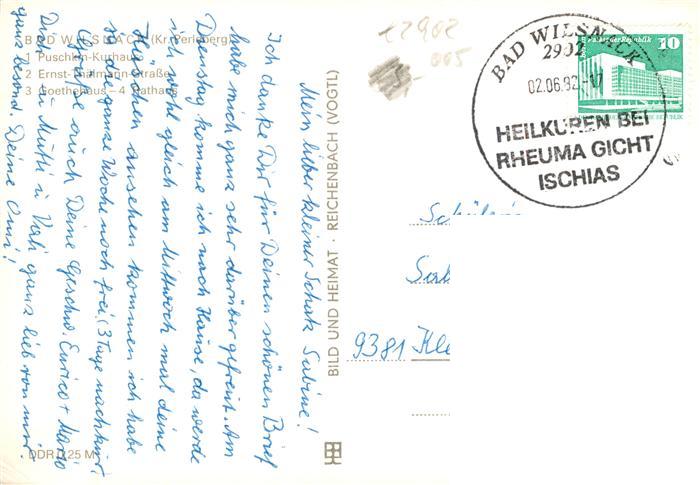 BAD WILSNACK (Kr. Perleberg)
1 Puschkin-Kurhaus
2 Ernst-Thälmann-Straße
3 Goethehaus – 4 Rathaus
Mein lieber kleiner Schatz Sabine!
Ich danke Dir für Deinen schönen Brief
habe mich ganz sehr darüber gefreut. Am
Dienstag komme ich nach Hause, da werde
ich wohl gleich am Mittwoch mal deine
Häschen ansehen kommen ich habe
ja d. ganze Woche noch frei. (3 Tage nachkur)
Grüße auch Deine Geschw. Enrico + Mario
Dich u Mutti u Vati ganz lieb von mir
ganz lieb. Deine Omi!
DDR 0,25 M
BILD UND HEIMAT · REICHENBACH (VOGTL)
22902
005
BAD WILSNACK
2902
02.06.82.-17
HEILKUREN BEI
RHEUMA GICHT
ISCHIAS
der Republik
10
9381 Kle